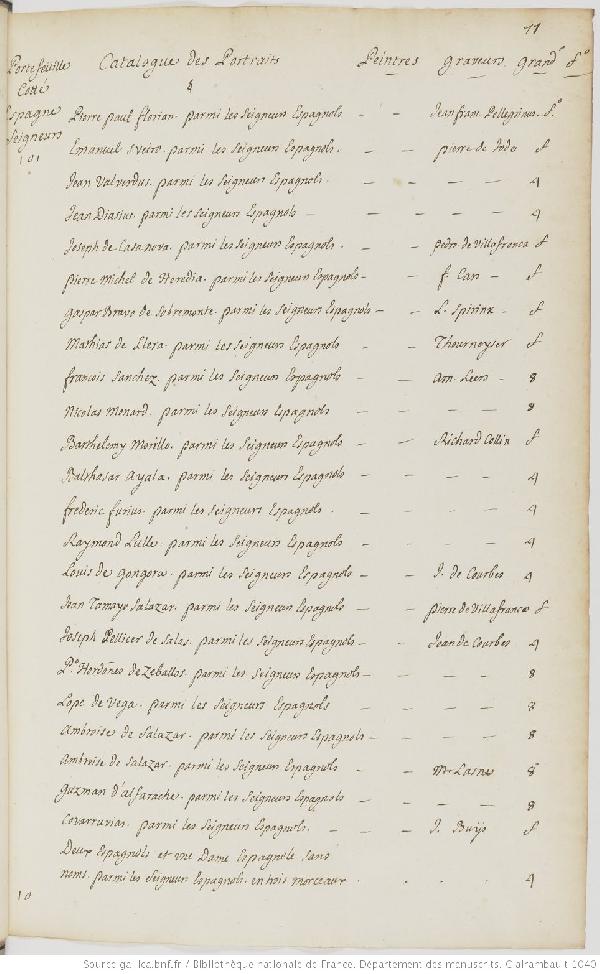 77
Portefeuille Catalogue des Portraits Peintres graveurs grand.r f.o
Cotte &
Espagne Pierre paul florian. parmi les Seigneurs Espagnols Jean franc. Pellegrinus. f.o
Seigneurs
101 Emanuel Sueiro. parmi les Seigneurs Espagnols. — pierre de Jode f
Jean Valverdus. parmi les Seigneurs Espagnols. — — — 4
Jean Diasius. parmi les Seigneurs Espagnols — — — — 4
Joseph de Casanova. parmi les Seigneurs Espagnols. — — pedro de Villafranca f
pierre Michel de Heredia. parmi les Seigneurs Espagnols — — f. Can — f
gaspar Bravo de Sobremonte. parmi les Seigneurs Espagnols — — L. Spirinx — f
Mathias de Llera. parmi les Seigneurs Espagnols — — Thourneyser f
francois Sanchez. parmi les Seigneurs Espagnols — — Arn. Leers — 8
Nicolas Monard. parmi les Seigneurs Espagnols — — — 8
Barthelemy Morillo. parmi les Seigneurs Espagnols — — Richard Collin f
Balthasar Ayala. parmi les Seigneurs Espagnols — — — 4
frederic furius. parmi les Seigneurs Espagnols. — — — 4
Raymond Lulle. parmi les Seigneurs Espagnols — — — 4
Louis de gongora. parmi les Seigneurs Espagnols — — J. de Courbes 4
Jean Tamayo Salazar. parmi les Seigneurs Espagnols — — pierre de Villafranca f
Joseph Pellicer de Salas. parmi les Seigneurs Espagnols — — Jean de Courbes 4
P.o Hordoñes de Zeballos. parmi les Seigneurs Espagnols — — — 8
Lope de Vega. parmi les Seigneurs Espagnols — — — 8
Ambroise de Salazar. parmi les Seigneurs Espagnols — — — 8
Ambroise de Salazar. parmi les Seigneurs Espagnols — M. Lasne 8
guzman d'alfarache. parmi les Seigneurs Espagnols — — — 8
Covarruvias. parmi les Seigneurs Espagnols. — — J. Buijs f
Deux Espagnols et une Dame Espagnole sans
noms. parmi les Seigneurs Espagnols. en trois morceaux . . . 4
10
Source gallica.bnf.fr / Bibliothèque nationale de France. Département des manuscrits. Clairambault 1040